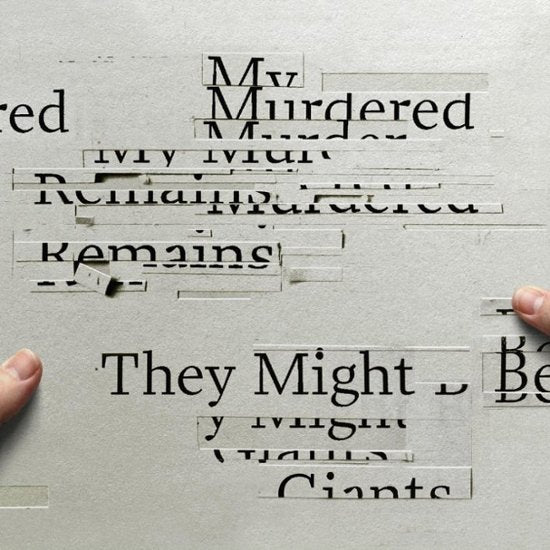 My
red Murdered
Murder
My Mur
Remains
Murdered
Remains
Be
They Might B Be
y Might
Giants
Giants